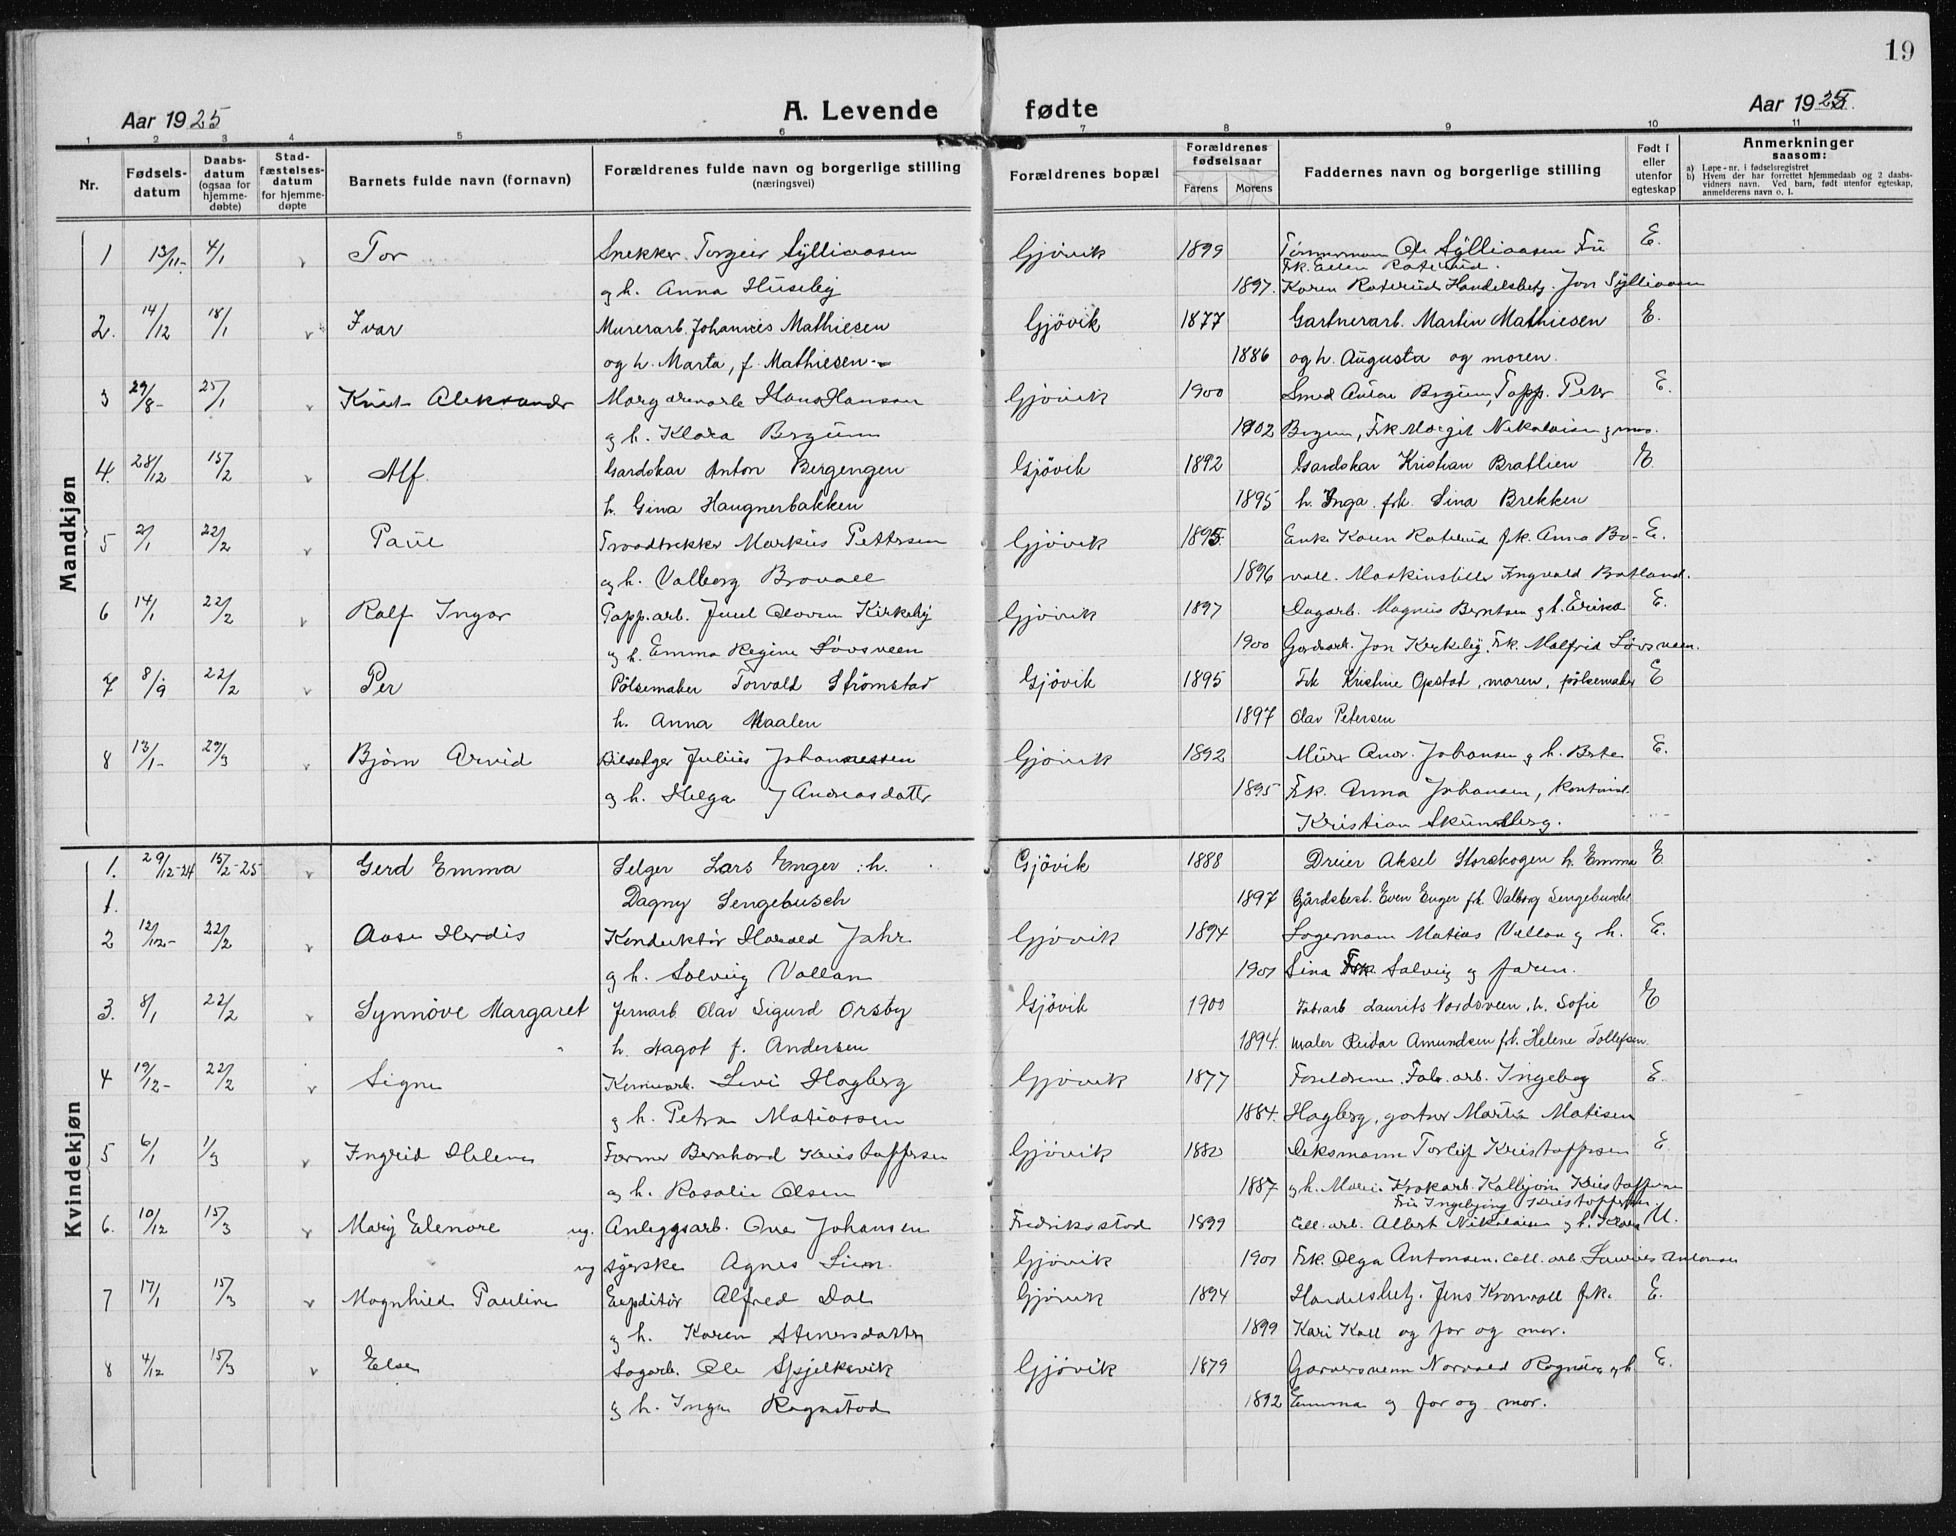 19
Aar 1925
A. Levende fødte
Aar 1925.
1 2 3 4 5 6 7 8 9 10 11
Nr.
Fødsels-
datum
Daabs-
datum
(ogsaa for
hjemme-
døbte)
Stad-
fæstelses-
datum
for hjemme-
døpte
Barnets fulde navn (fornavn)
Forældrenes fulde navn og borgerlige stilling
(næringsvei)
Forældrenes bopæl
Forældrenes
fødselsaar
Farens Morens
Faddernes navn og borgerlige stilling
Født i
eller
utenfor
egteskap
Anmerkninger
saasom:
a) Løpe-nr. i fødselsregistret
b) Hvem der har forrettet hjemmedaab og 2 daabs-
vidners navn. Ved barn, født utenfor egteskap,
anmelderens navn o. l.
Mandkjøn
1 13/11- 4/1 Tor Snekker Torgeir Sylliaasen Gjøvik 1899 Tømmermann Ole Sylliaasen Fru E.
Frk. Ellen Roterud.
og h. Anna Huseby 1897. Karen Roterud Handelsbetj. Jon Sylliaasen
2. 14/12 18/1 Ivar Murerarb. Johannes Mathiesen Gjøvik 1877 Gartnerarb. Martin Mathiesen E.
og h. Marta, f. Mathiesen 1886 og h. Augusta og moren.
3 29/8- 25/1 Knut Aleksander Margarinarb Hans Hansen Gjøvik 1900 Smed Anton Bergum, Tapp. Peter E.
og h. Klara Bergum 1902 Bergum, Frk Margit Nikolaisen og mor.
4. 28/12 15/2 Alf. Gardskar Anton Bergengen Gjøvik 1892 Gardskar Kristian Bratlien E.
h. Gina Haugnerbakken 1895 h. Inga. frk. Sina Brekken
5 2/1 22/2 Paul Traadtrekker Markus Pettersen Gjøvik 1895. Enke Karen Roterud frk. Anna Bro- E.
og h. Valborg Brovall 1896 vall. Maskinstiller Ingvald Bratland.
6 14/1 22/2 Ralf Ingar Papp.arb. Juul Kirkeby Gjøvik 1897 Dagarb. Magnus Berntsen og h. Erika E.
og h. Emma Regine Løvsveen 1900 Gardsarb. Jon Kirkeby. Frk. Malfrid Løvsveen.
7 8/9 22/2 Per Pølsemaker Torvald Strømstad Gjøvik 1895 Frk Kristine Opstad, moren, pølsemaker E
h. Anna Maalen 1897 Olav Petersen
8 13/1- 29/3 Bjørn Arvid Bileselger Julius Johannessen Gjøvik 1892 Murer Andr. Johansen og h. Berte E.
og h. Helga Andreasdatter 1895 Frk. Anna Johansen, kontorist
Kristian Skundberg.
Kvindekjøn
1. 29/12-24 15/2-25 Gerd Emma Selger Lars Enger . h. Gjøvik 1888 Dreier Aksel Storskogen h. Emma E.
1. Dagny Sengebusch 1897 Gårdsbest. Even Enger fr. Valborg Sengebusch
2 12/12- 22/2 Aase Herdis Konduktør Harald Jahr Gjøvik 1894 Lagermann Matias Vallan og h. E.
og h. Solveig Vallan 1901 Sina Frk. Solveig og faren.
3. 8/1 22/2 Synnöve Margaret Jernarb Olav Sigurd Orsby Gjøvik 1900 Fabrarb Laurits Nordsveen, h. Sofie E
h. Dagot f. Andersen 1894. maler Reidar Amundsen fr. Helene Tollefsen
4 19/12- 22/2 Signe Levi Hagberg Gjøvik 1877 Foreldrene. Fab. arb. Ingeborg E.
og h. Petra Matiassen 1884. Hagberg, gartner Martin Matisen
5 6/1 1/3 Ingrid Helene Former Bernhard Kristoffersen Gjøvik 1880 Torleif Kristoffersen E
og h. Rosalie Olsen 1887 og h. Marie. Krokarb. Kallbjørn Kristoffersen
Fru Ingebjørg Kristoffersen
6. 10/12 15/3 Mary Elenore ug. Anleggsarb. Ove Johansen Fredriksstad 1899 Cell. arb. Albert Nikolaisen og h. Klara U.
ug syerske Agnes Lien. Gjøvik 1901 Frk. Olga Antonsen. cell. arb Laurits Antonsen
7 17/1 15/3 Magnhild Pauline Expeditør Alfred Dal Gjøvik 1894 Handelsbetj. Jens Kronvall frk. E.
og h. Karen Stenersdatter 1899 Kari Kall og far og mor.
8 4/12 15/3 Else Sagarb. Ole Spjelkavik Gjøvik 1879 Garversvenn Norvald Rognstad og h. E.
og h. Inga Rognstad 1892 Emma og far og mor.